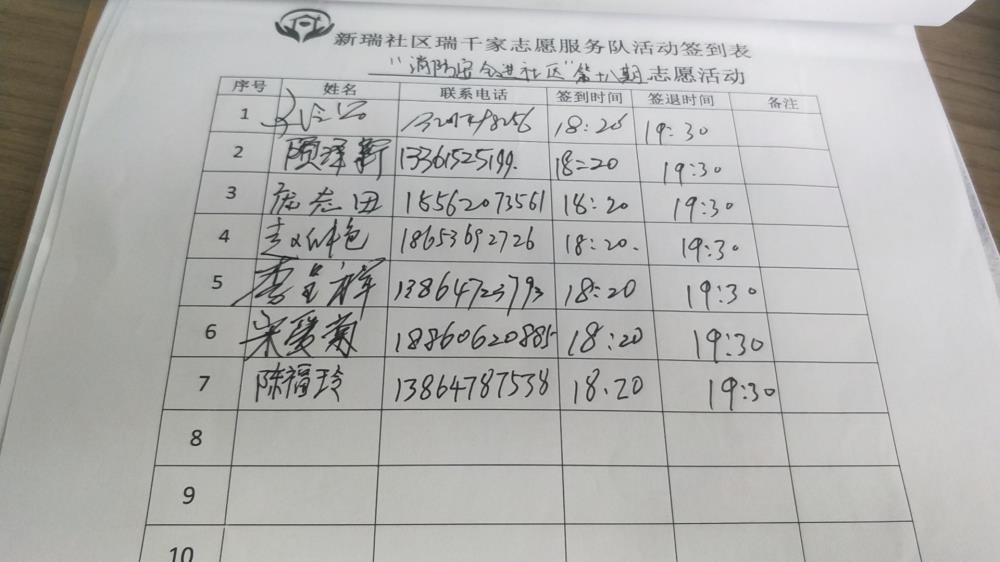 新瑞社区瑞千家志愿服务队活动签到表
"消防安全进社区"第十八期志愿活动
序号 姓名 联系电话 签到时间 签退时间 备注
1 18:20 19:30
2 顾泽新 13361525199. 18:20 19:30
3 庞志田 18562073561 18:20 19:30
4 18653692726 18:20. 19:30
5 李呈祥 13864723793 18:20 19:30
6 宋爱菊 18860620885 18:20 19:30
7 陈福玲 13864787538 18:20 19:30
8
9
10